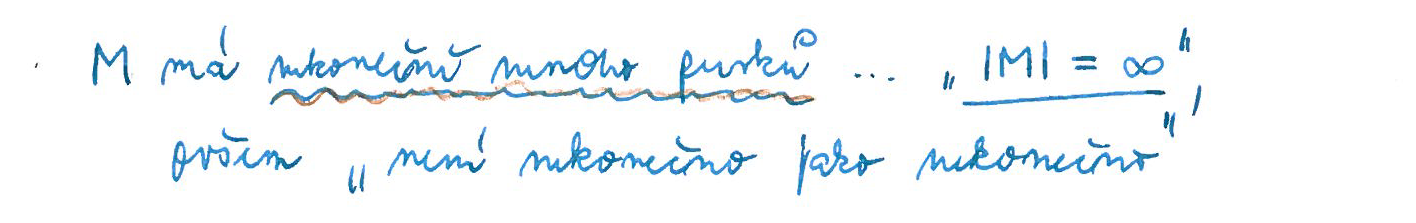 M má nekonečně mnoho prvků ... „|M| = ∞“,
ovšem „není nekonečno jako nekonečno“